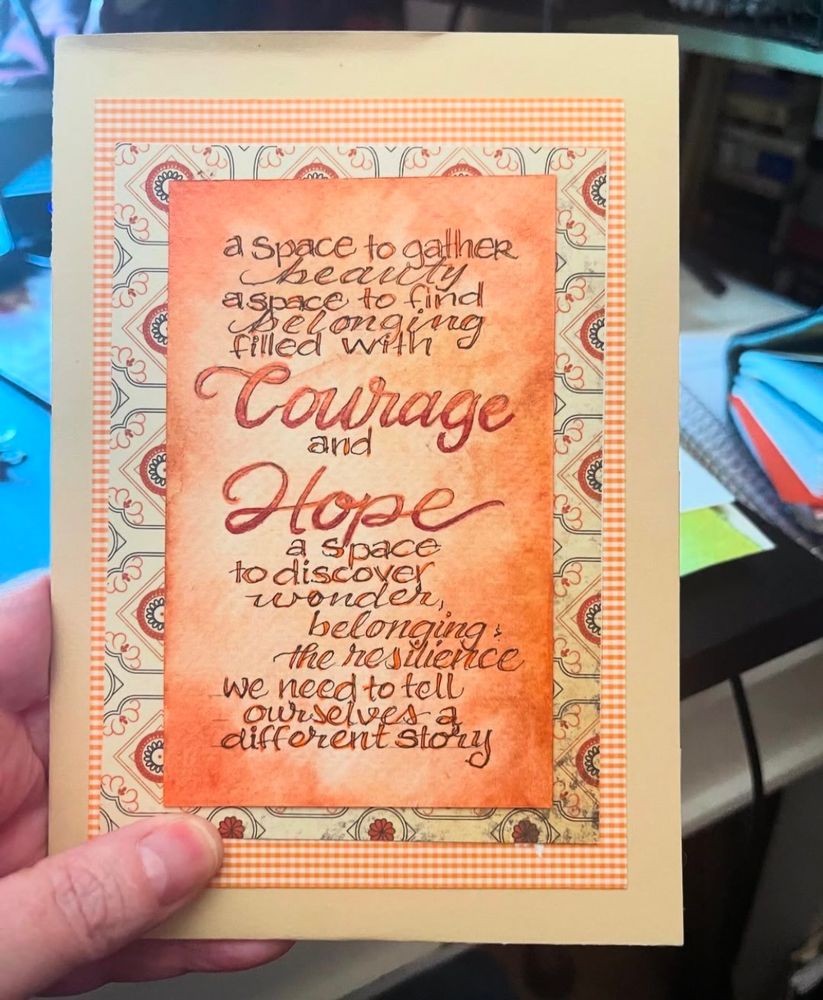 a space to gather
beauty
a space to find
belonging
filled with
Courage
and
Hope
a space
to discover
wonder,
belonging &
the resilience
we need to tell
ourselves a
different story